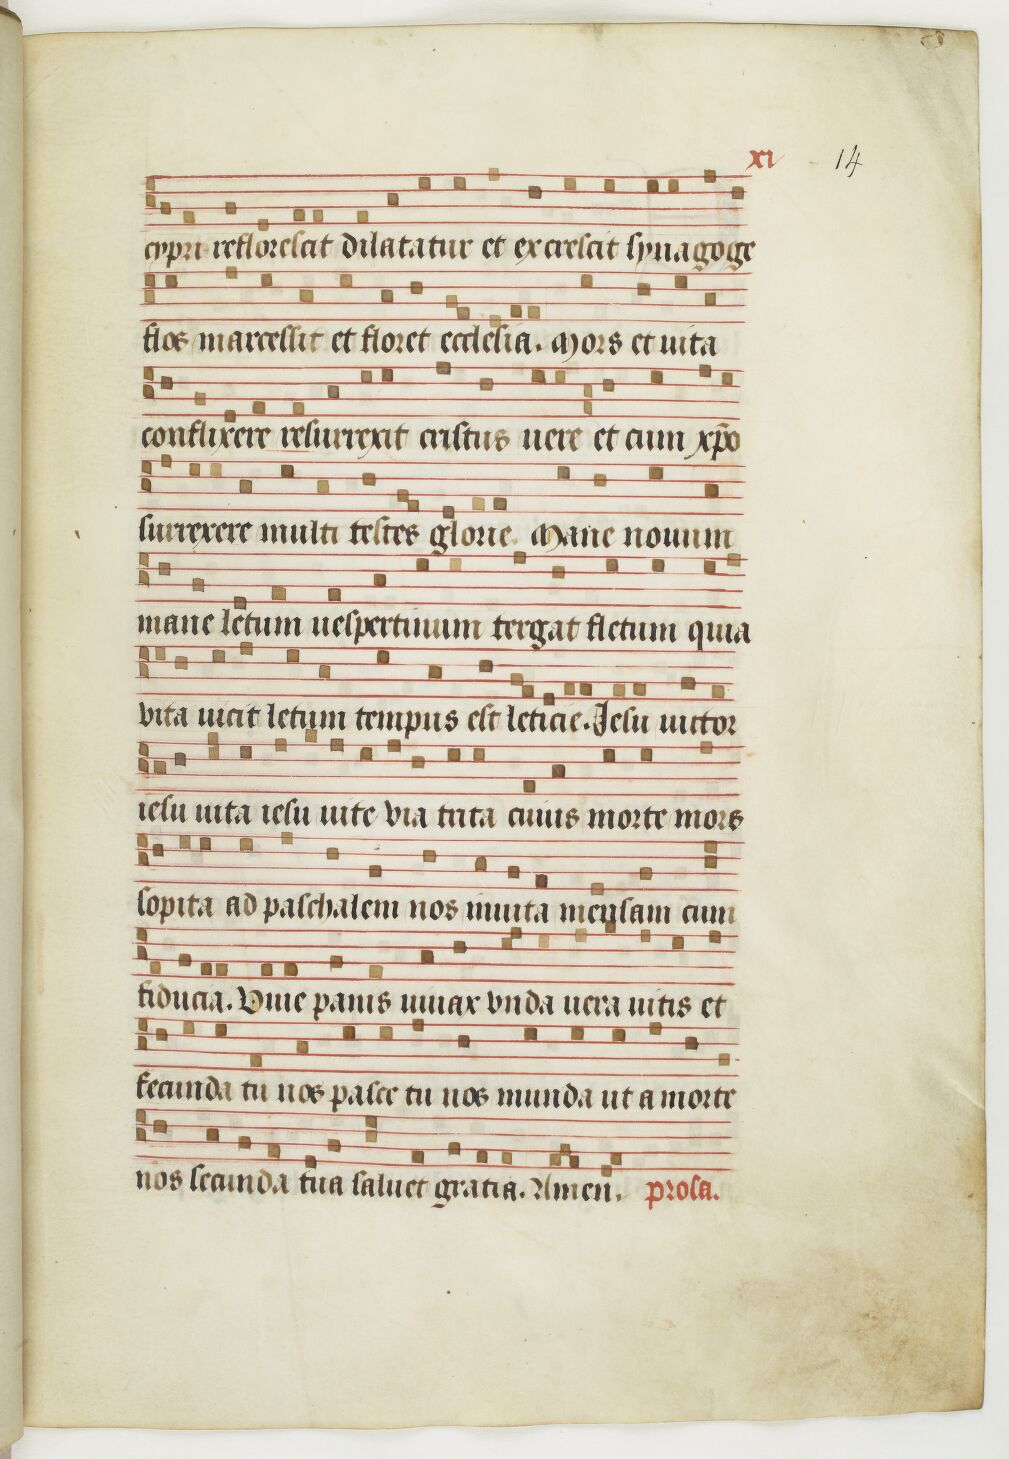 xi 14
cypri reflorescit dilatatur et excrescit synagoge
flos marcessit et floret ecclesia. Mors et uita
conflixere resurrexit cristus uere et cum xp̄o
surrexere multi testes glorie. Mane nouum
mane letum uespertinum tergat fletum quia
vita uicit letum tempus est leticie. Jesu uictor
iesu uita iesu uite via trita cuius morte mors
sopita ad paschalem nos inuita mensam cum
fiducia. Viue panis uiuax vnda uera uitis et
fecunda tu nos pasce tu nos munda ut a morte
nos secunda tua saluet gratia. Amen. prosa.